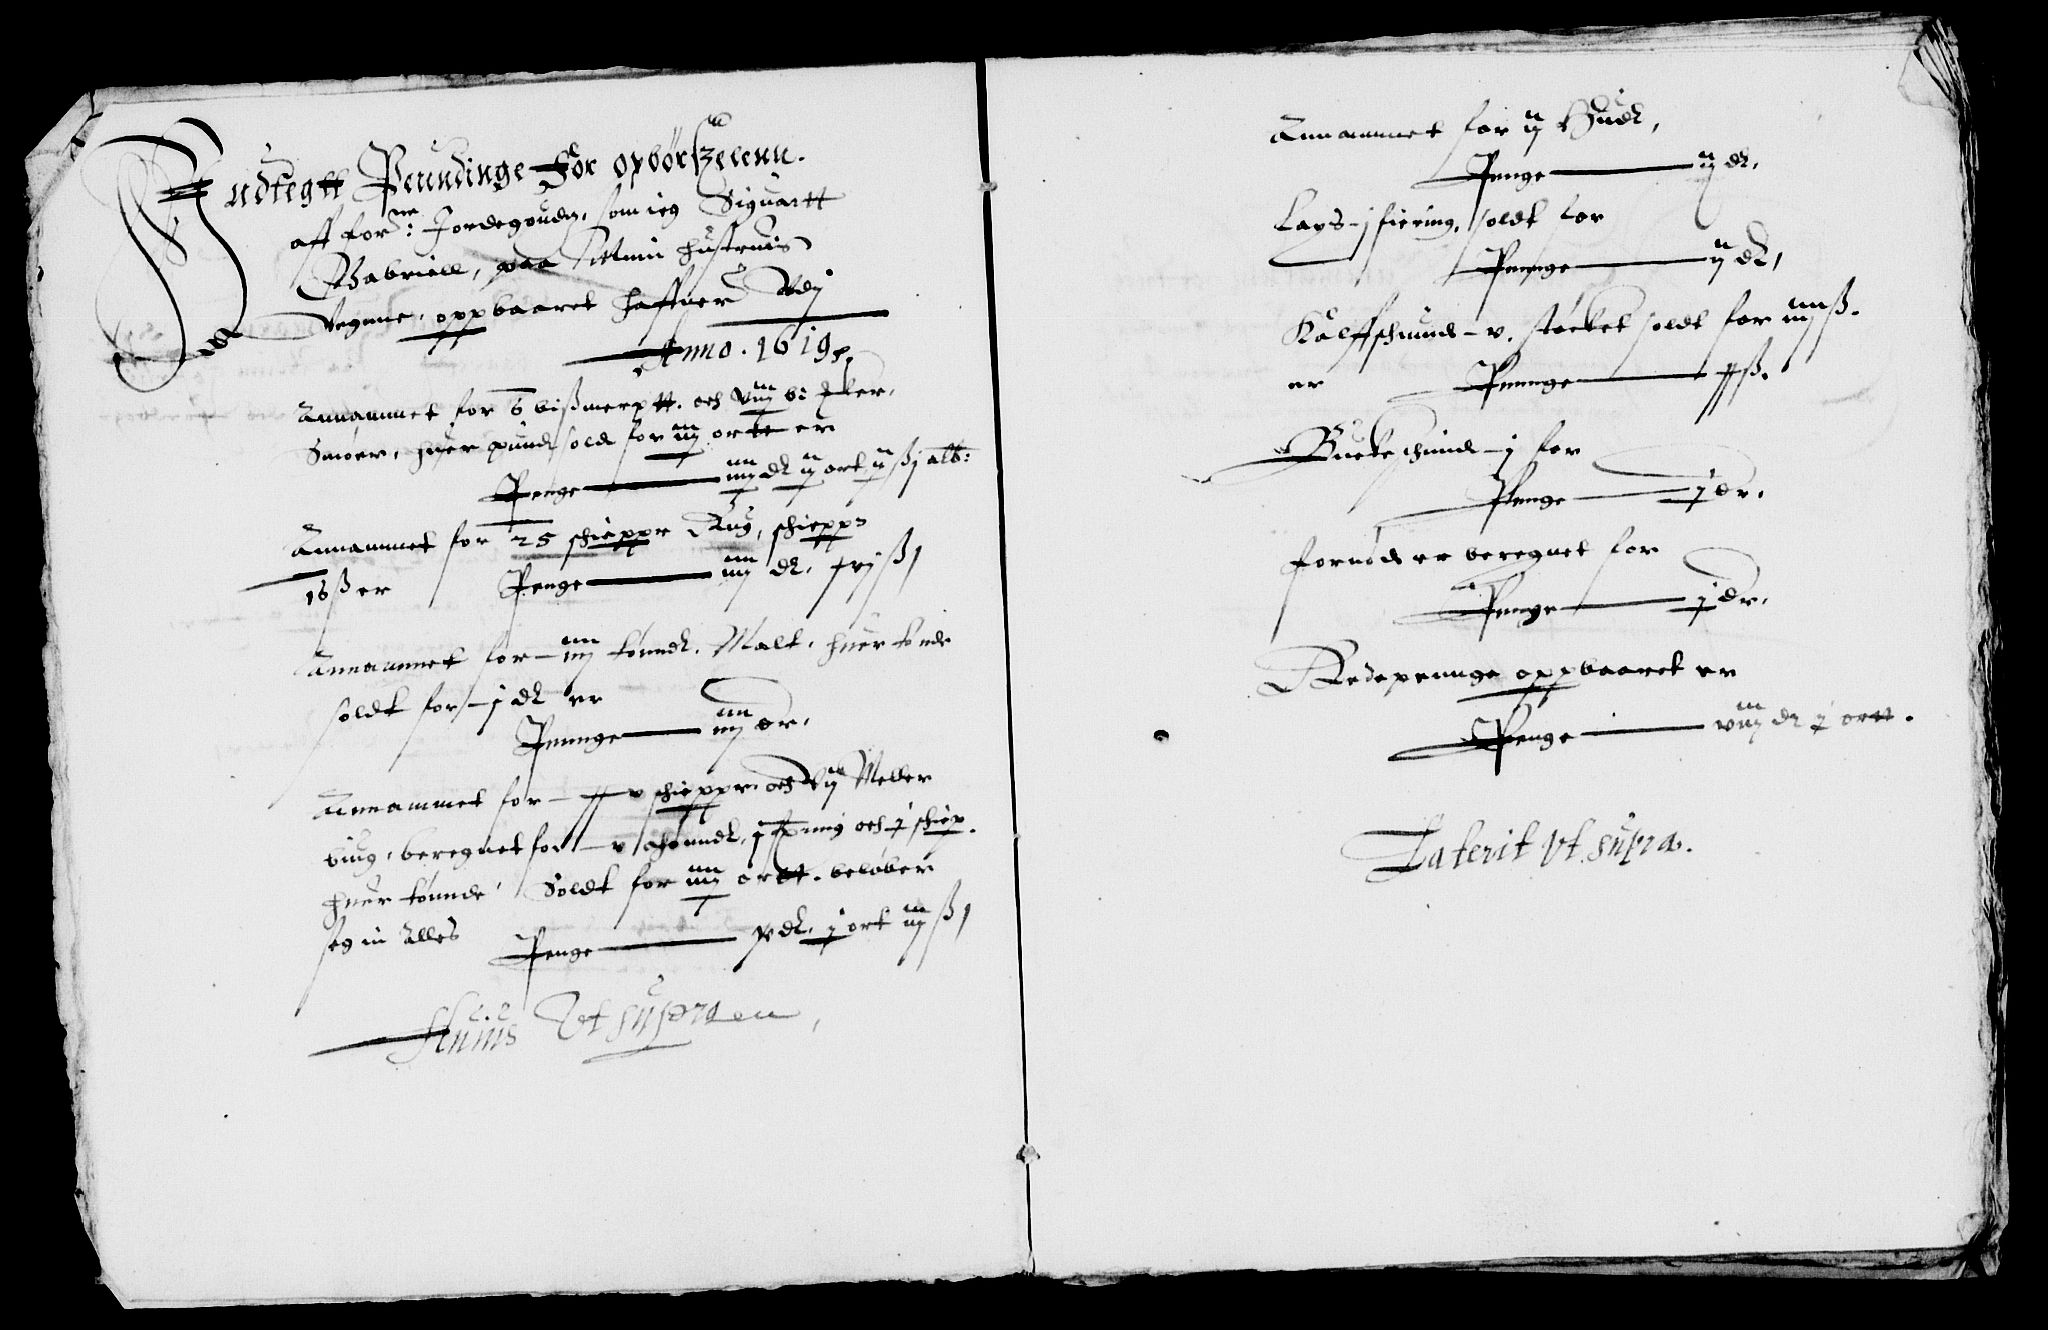 Indtegtt Penndinge For opbørszelenn.
aff for:ne Jordegoudz, som ieg Siguartt
Gabriell, paa min hustruis
Vegnne, oppbaaret haffuer Vdj
Anno. 1619.
Annammet for 6 bißmerptt. och Viij bißmer
Smöer, huer pund sold for iij ortt er
Penge — iiij dl ij ort ij ß j alb:
Annammet for 25 schiepper Rug, schiepp=
16 ß er Penge — iiij dl. xvj ß
Annammet for — iiij tönndl. Malt, huer tönde
soldt for — j dl er
Pennge — iiij dr.
Annammet for — xxv schiepper och Vij Meller
biug, beregnet for — v thönndl. j och j schiep.
huer tönnde Soldt for iiij ortt. belöber
seg in Alles Penge — x dl. j ort iiij ß
Huius Vt supra
Annammet for ij Hudl,
Penge — ij dl.
Lax — j fiering, soldt for
Pennge — ij dl,
Kalffschinnd — v. støcket soldt for iiij ß.
er Pennge — xx ß.
Buckeschind — j for
Penge — j dr.
fornöds er beregnet for
Penge — j dr.
Redepennge oppbaaret er
Penge — viij dl j ortt.
Laterit Vt supra.